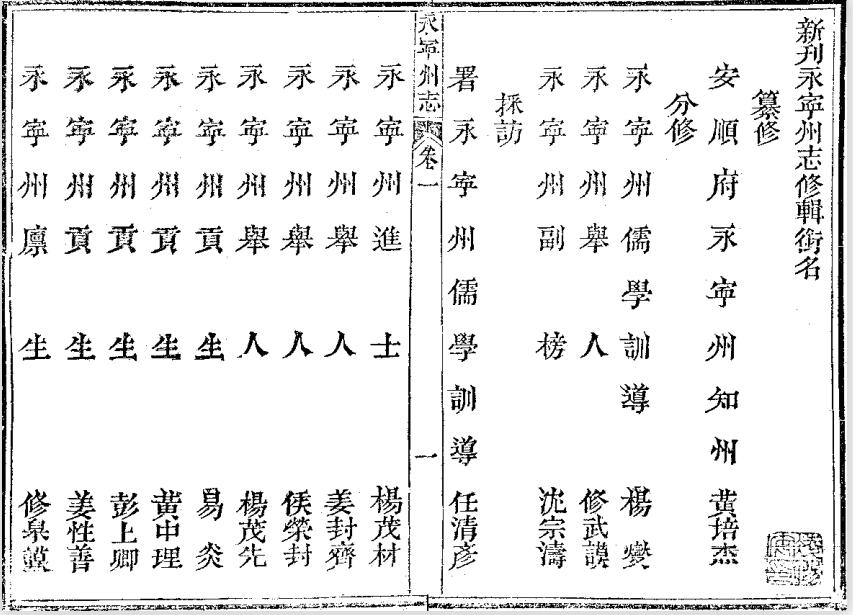 新刊永寧州志修輯銜名
纂修
安順府永寧州知州 黃培杰
分修
永寧州儒學訓導 楊燮
永寧州舉人 修武謨
永寧州副榜 沈宗濤
採訪
署永寧州儒學訓導 任清彥
永寧州志 卷一 一
永寧州進士 楊茂材
永寧州舉人 姜封齊
永寧州舉人 侯榮封
永寧州舉人 楊茂先
永寧州貢生 易炎
永寧州貢生 黃中理
永寧州貢生 彭上卿
永寧州貢生 姜性善
永寧州廪生 修臯謨